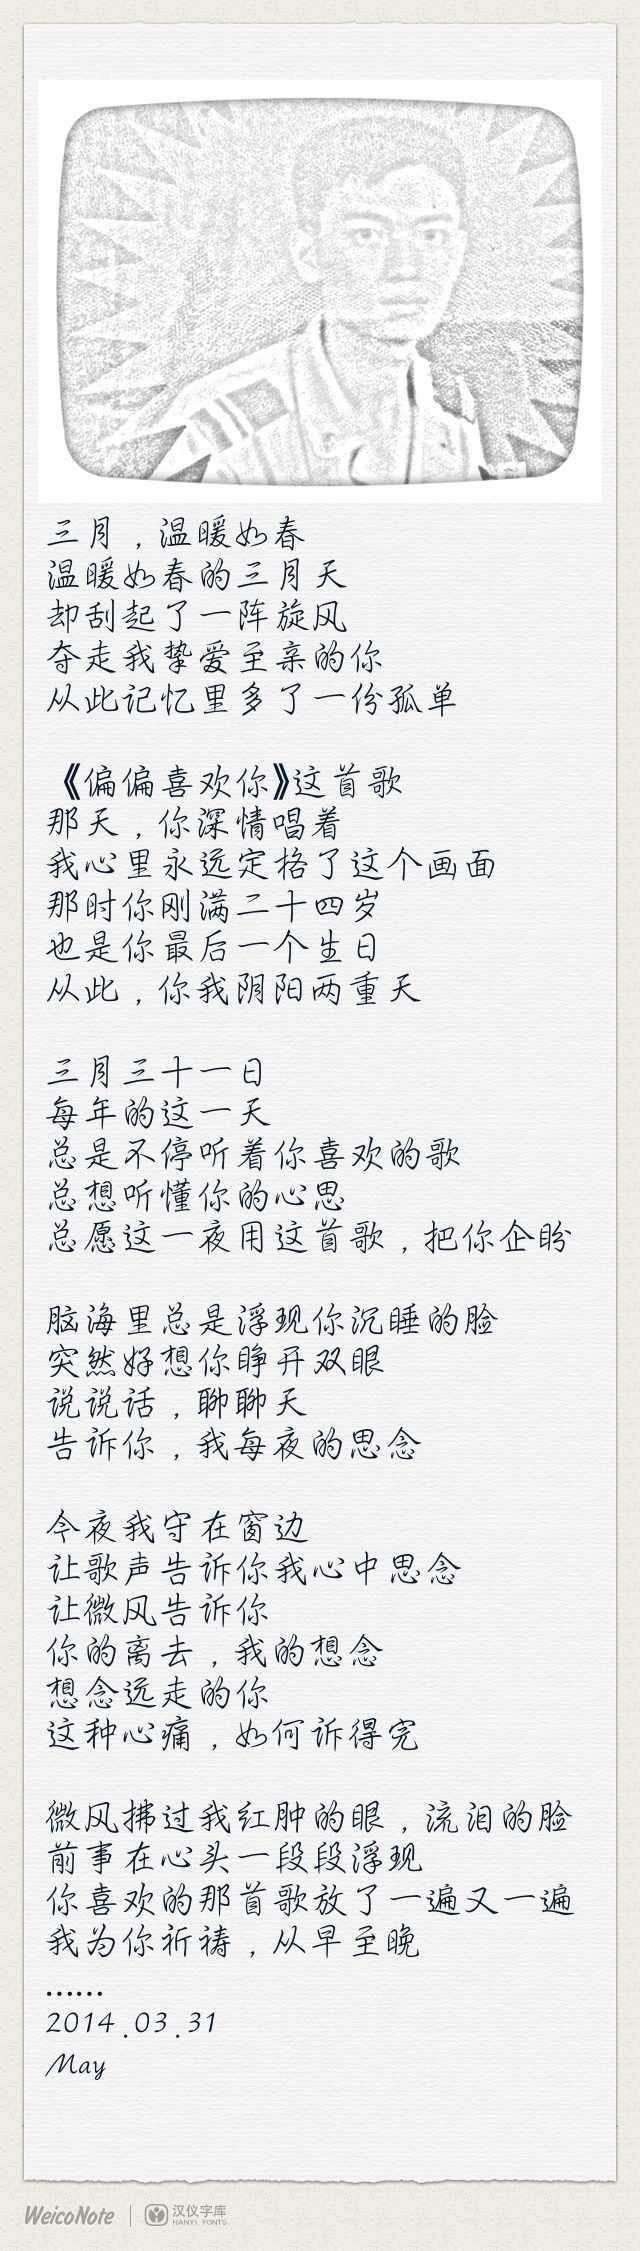 三月，温暖如春
温暖如春的三月天
却刮起了一阵旋风
夺走我挚爱至亲的你
从此记忆里多了一份孤单
《偏偏喜欢你》这首歌
那天，你深情唱着
我心里永远定格了这个画面
那时你刚满二十四岁
也是你最后一个生日
从此，你我阴阳两重天
三月三十一日
每年的这一天
总是不停听着你喜欢的歌
总想听懂你的心思
总愿这一夜用这首歌，把你企盼
脑海里总是浮现你沉睡的脸
突然好想你睁开双眼
说说话，聊聊天
告诉你，我每夜的思念
今夜我守在窗边
让歌声告诉你我心中思念
让微风告诉你
你的离去，我的想念
想念远走的你
这种心痛，如何诉得完
微风拂过我红肿的眼，流泪的脸
前事在心头一段段浮现
你喜欢的那首歌放了一遍又一遍
我为你祈祷，从早至晚
……
2014.03.31
May
WeicoNote | 汉仪字库
HANYI FONTS